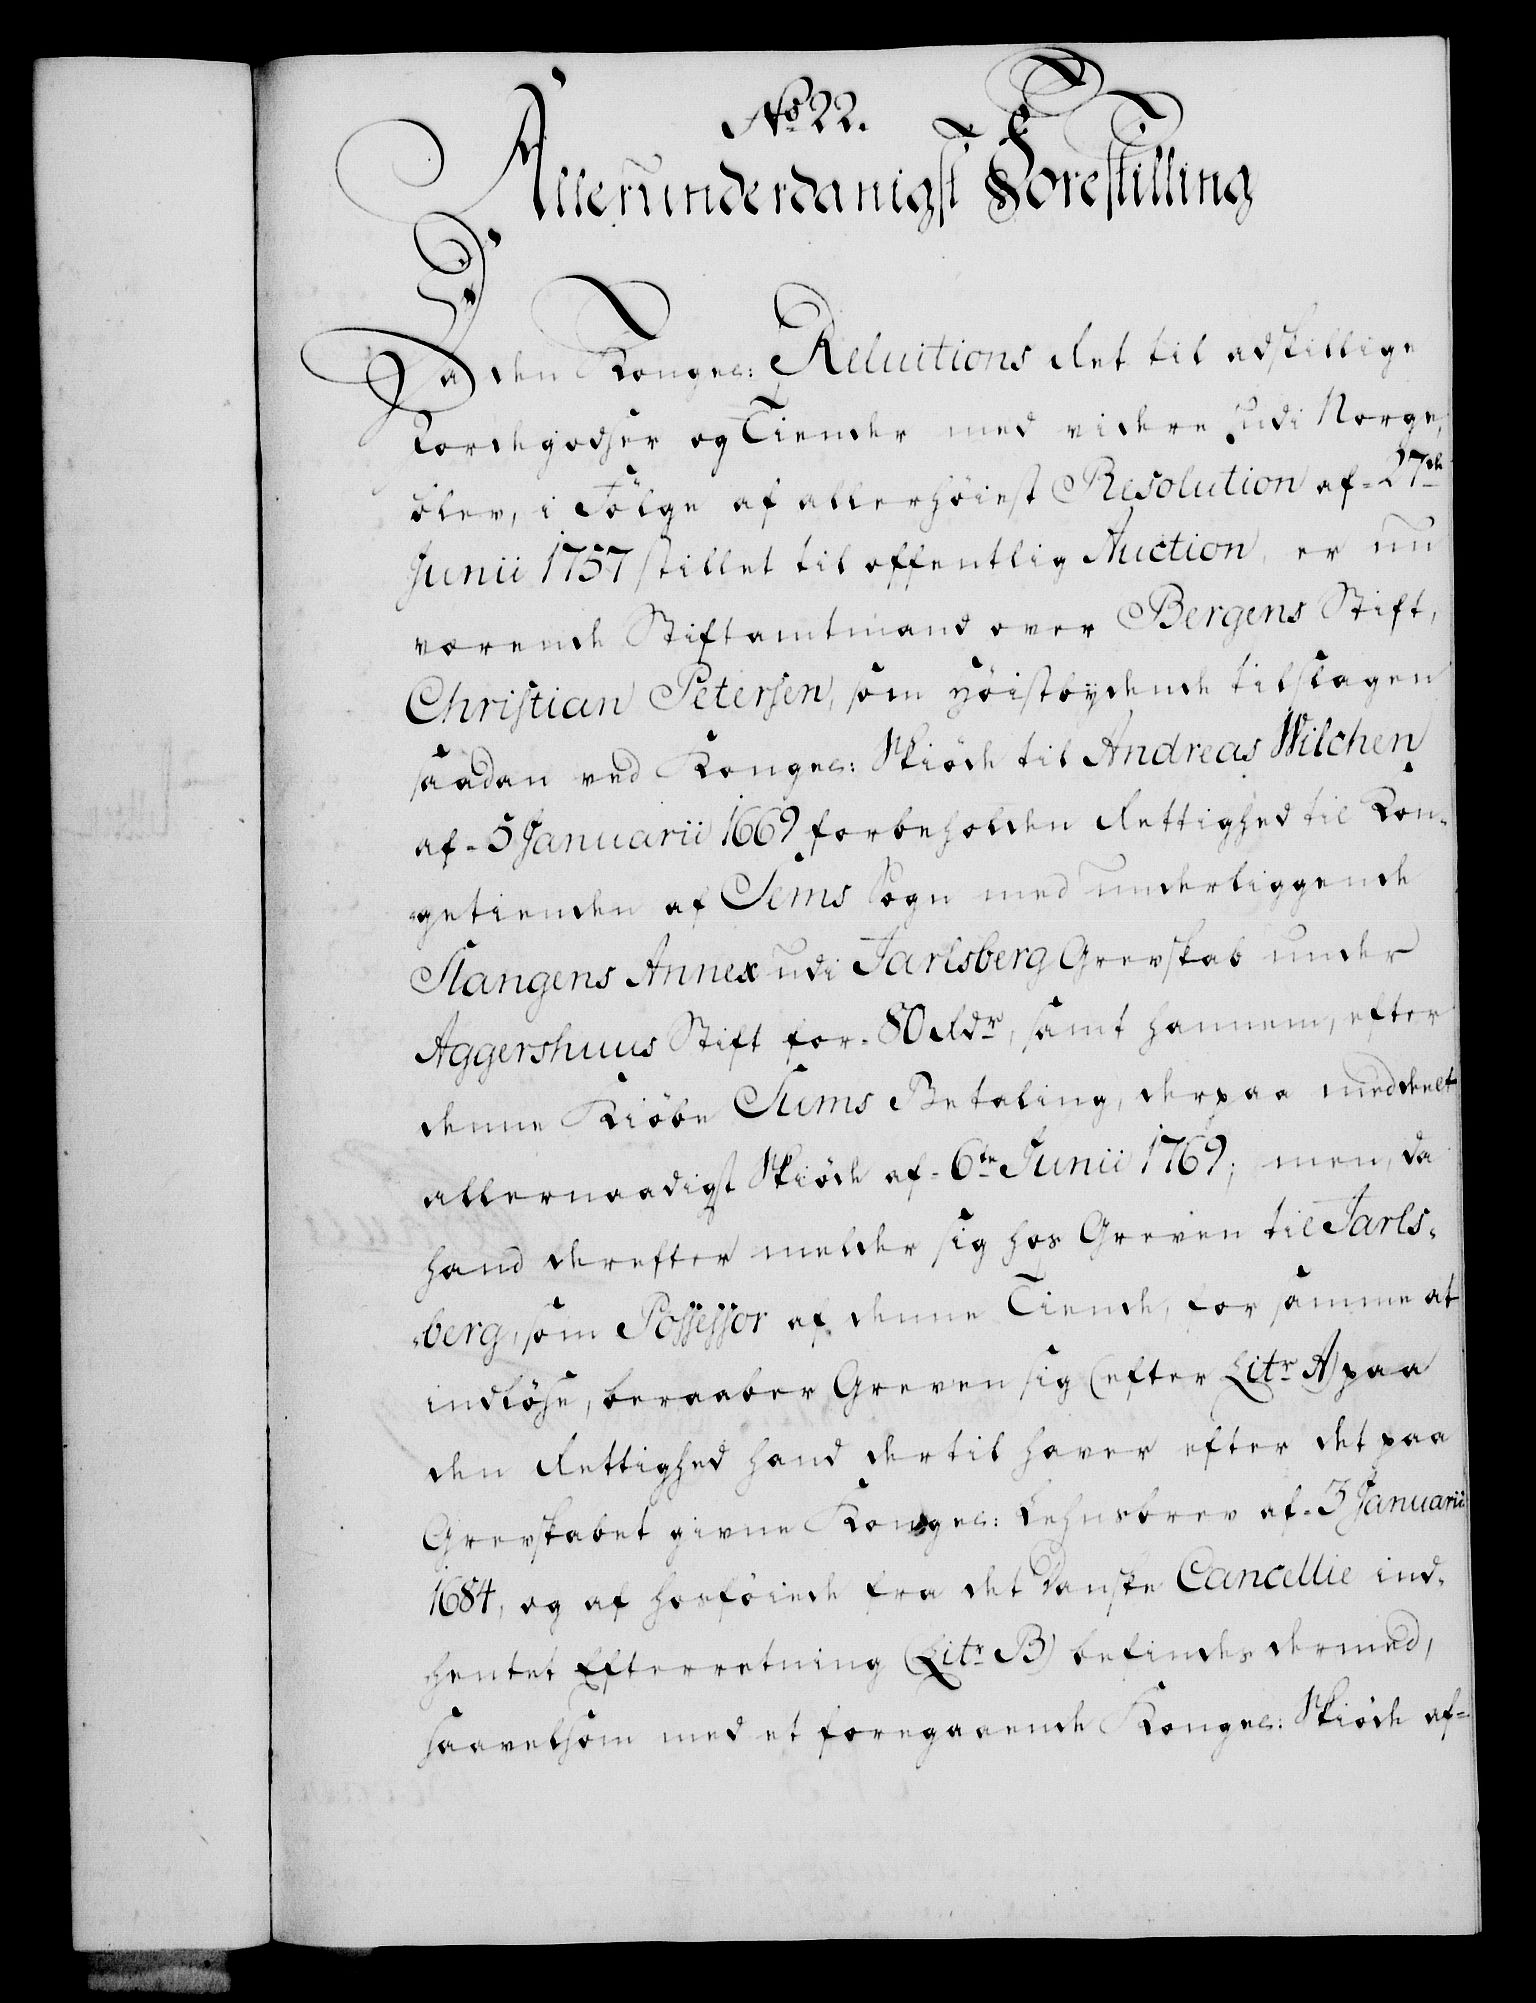 No 22.
Allerunderdanigst Forestilling
Da den Kongel: Reluitions Ret til adskillige
Jordegodser og Tiender med videre udi Norge,
blev, i Følge af allerhöiest Resolution af 27de
Junii 1757 stillet til offentlig Auction, er nu
værende Stiftamtmand over Bergens Stift,
Christian Petersen, som Höistbydende tilslagen
saadan ved Kongel: Skiöde til Andreas Wilchen
af 5 Januarii 1669 forbeholden Rettighed til Kon-
getienden af Sems Sogn med underliggende
Slangens Annex udi Jarlsberg Grevskab under
Aggershuus Stift for 80 Rdr, samt hannem, efter
denne Kiöbe Sums Betaling, derpaa meddeelt
allernaadigst Skiöde af 6te Junii 1769; men, da
hand derefter melder sig hos Greven til Jarls-
berg, som Possessor af denne Tiende, for samme at
indlöse, beraaber Greven sig (efter Litr A) paa
den Rettighed hand dertil haver efter det paa
Grevskabet givne Kongel: Lehnsbrev af 3 Januarii
1684, og af hosföiede fra det danske Cancellie ind-
hentet Efterretning (Litr B) befindes dermed,
saavelsom med et foregaaende Kongel: Skiöde af